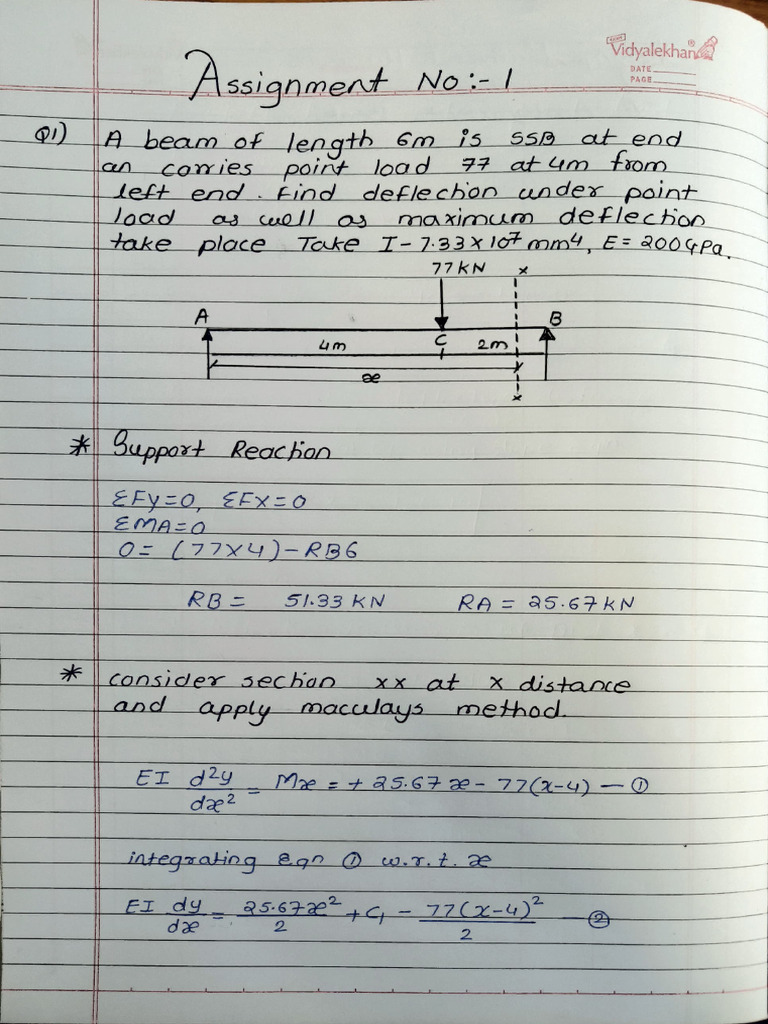 Vidyalekhan
DATE
PAGE
Assignment No:- 1
Q1) A beam of length 6m is SSB at end
an carries point load 77 at 4m from
left end. Find deflection under point
load as well as maximum deflection
take place Take I - 7.33 × 10⁷ mm⁴, E = 200 GPa.
77 KN x
A C B
4m 2m
x
x
* Support Reaction
ΣFy=0, ΣFx=0
ΣMA=0
0= (77×4) - RB6
RB = 51.33 KN RA = 25.67 KN
* consider section xx at x distance
and apply maculays method.
EI d²y/dx² = Mx = + 25.67 x - 77(x-4) — ①
integrating eqn ① w.r.t. x
EI dy/dx = 25.67x²/2 + C₁ - 77(x-4)²/2 — ②